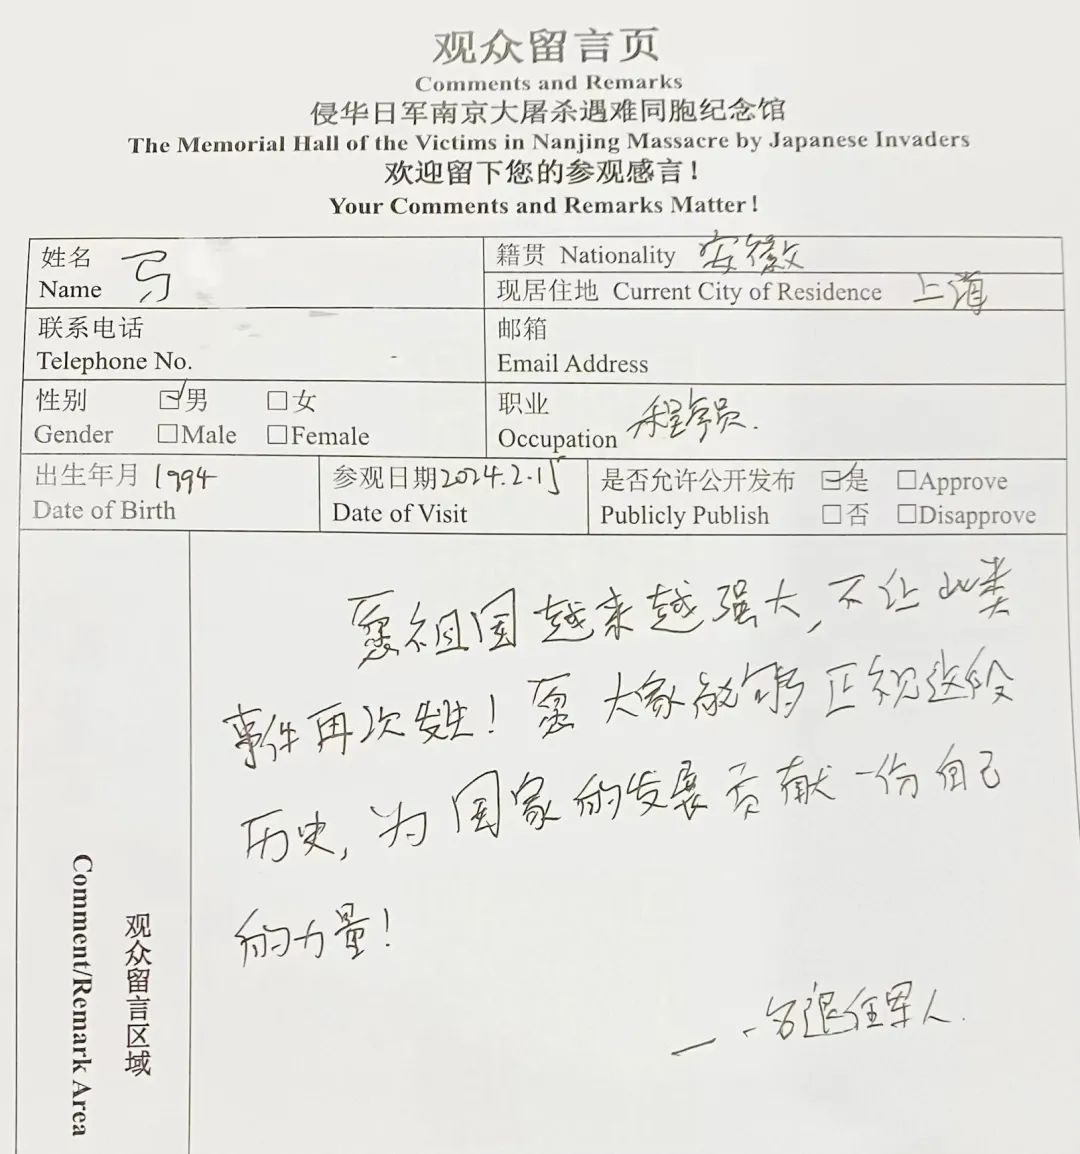 观众留言页
Comments and Remarks
侵华日军南京大屠杀遇难同胞纪念馆
The Memorial Hall of the Victims in Nanjing Massacre by Japanese Invaders
欢迎留下您的参观感言！
Your Comments and Remarks Matter！
姓名
Name
籍贯 Nationality 安徽
现居住地 Current City of Residence 上海
联系电话
Telephone No.
邮箱
Email Address
性别 ☑男 □女
Gender □Male □Female
职业
Occupation 程序员.
出生年月 1994
Date of Birth
参观日期 2024.2.15
Date of Visit
是否允许公开发布 ☑是 □Approve
Publicly Publish □否 □Disapprove
观众留言区域
Comment/Remark Area
愿祖国越来越强大，不让此类
事件再次发生！愿大家能够正视这段
历史，为国家的发展贡献一份自己
的力量！
—一名退伍军人.